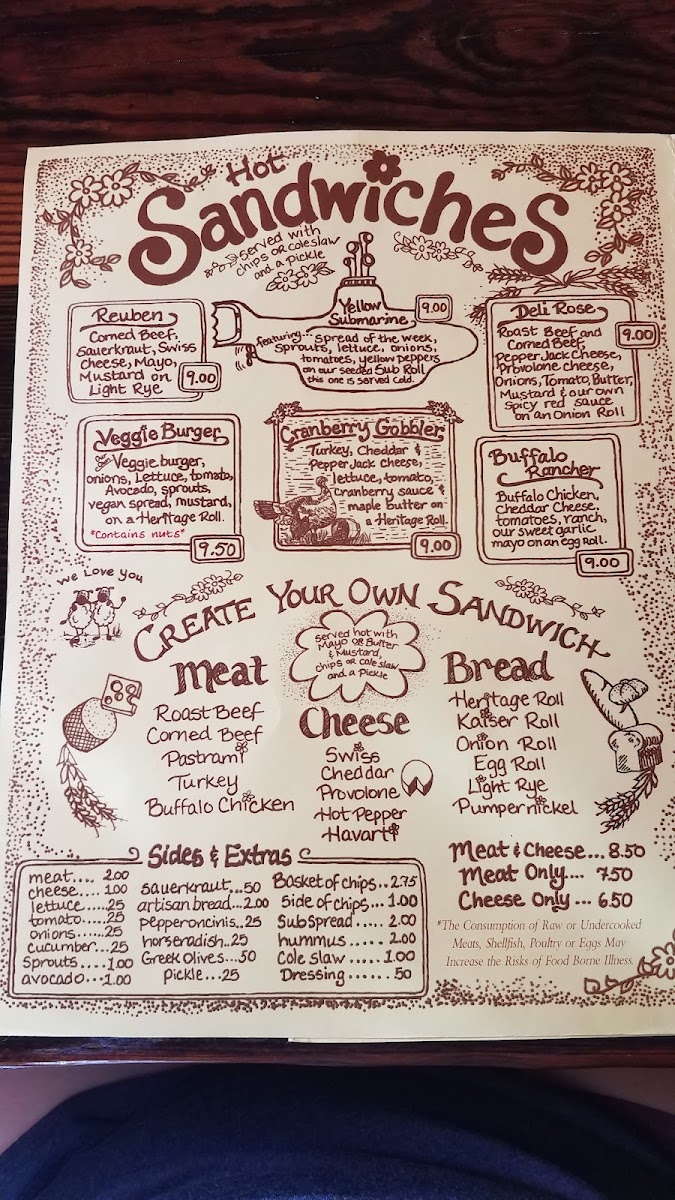 Hot
Sandwiches
served with
chips or coleslaw
and a pickle
Reuben
Corned Beef,
Sauerkraut, Swiss
Cheese, Mayo,
Mustard on
Light Rye
9.00
Yellow
Submarine
9.00
featuring... spread of the week,
sprouts, lettuce, onions,
tomatoes, yellow peppers
on our seeded Sub Roll
this one is served cold.
Deli Rose
9.00
Roast Beef and
Corned Beef,
Pepper Jack Cheese,
Provolone cheese,
Onions, Tomato, Butter,
Mustard & our own
Spicy red sauce
on an Onion Roll
Veggie Burger
our own Veggie burger,
onions, Lettuce, tomato,
Avocado, sprouts,
vegan spread, mustard,
on a Heritage Roll.
*Contains nuts*
9.50
Cranberry Gobbler
Turkey, Cheddar &
Pepper Jack cheese,
lettuce, tomato,
cranberry sauce &
maple butter on
a Heritage Roll.
9.00
Buffalo
Rancher
Buffalo Chicken,
Cheddar Cheese,
tomatoes, ranch,
our sweet garlic
mayo on an egg Roll.
9.00
We Love You
Create Your Own Sandwich
served hot with
Mayo OR Butter
& Mustard,
chips OR cole slaw
and a Pickle
Meat
Roast Beef
Corned Beef
Pastrami
Turkey
Buffalo Chicken
Cheese
Swiss
Cheddar
Provolone
Hot Pepper
Havarti
Bread
Heritage Roll
Kaiser Roll
Onion Roll
Egg Roll
Light Rye
Pumpernickel
Sides & Extras
meat.... 2.00
cheese.... 1.00
lettuce.....25
tomato.....25
onions.....25
cucumber...25
sprouts....1.00
avocado...1.00
sauerkraut...50
artisan bread...2.00
pepperoncinis..25
horseradish..25
Greek Olives...50
Pickle...25
Basket of chips..2.75
Side of chips...1.00
Sub Spread.....2.00
hummus.....2.00
Cole slaw.....1.00
Dressing......50
Meat & Cheese...8.50
Meat Only.... 7.50
Cheese Only... 6.50
*The Consumption of Raw or Undercooked
Meats, Shellfish, Poultry or Eggs May
Increase the Risks of Food Borne Illness.